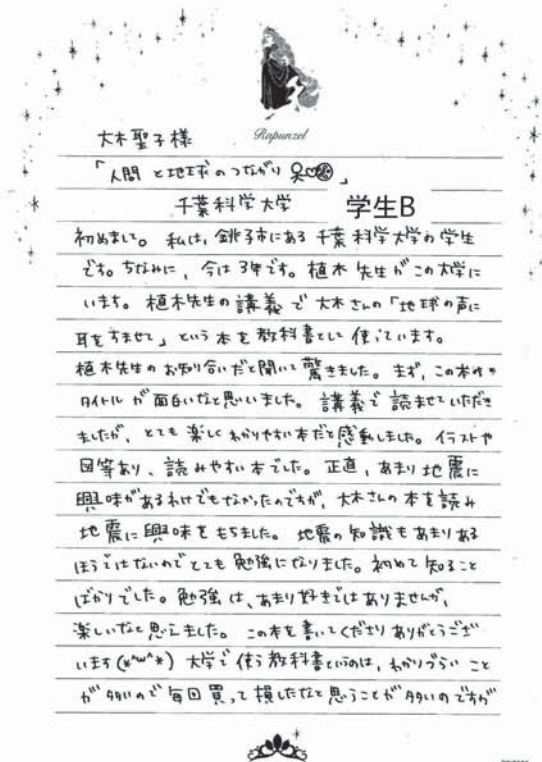 Rapunzel
大木聖子様
「人間と地球のつながり」
千葉科学大学 学生B
初めまして。私は、銚子市にある千葉科学大学の学生
です。ちなみに、今は3年です。植木先生がこの大学に
います。植木先生の講義で大木さんの「地球の声に
耳をすませて」という本を教科書として使っています。
植木先生のお知り合いだと聞いて驚きました。まず、この本の
タイトルが面白いなと思いました。講義で読ませていただき
ましたが、とても楽しくわかりやすい本だと感動しました。イラストや
図等あり、読みやすい本でした。正直、あまり地震に
興味があるわけでもなかったのですが、大木さんの本を読み
地震に興味をもちました。地震の知識もあまりある
ほうではないのでとても勉強になりました。初めて知ること
ばかりでした。勉強は、あまり好きではありませんが、
楽しいなと思えました。この本を書いてくださりありがとうござ
います(*^ω^*) 大学で使う教科書というのは、わかりづらいこと
が多いので毎回買って損したなと思うことが多いのですが